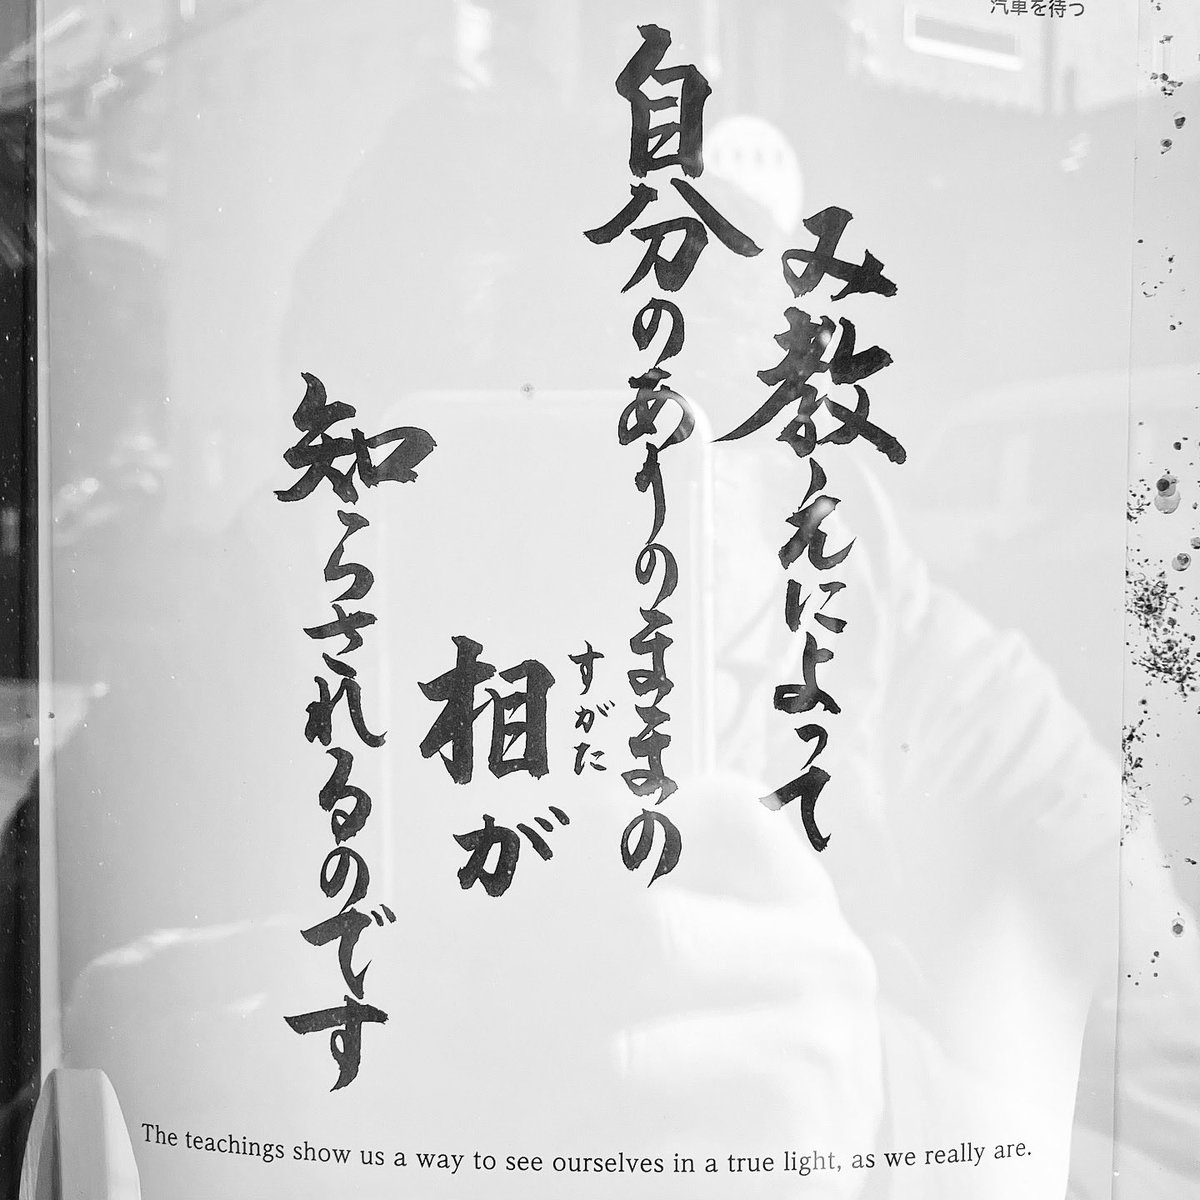 汽車を待つ
み教えによって
自分のありのままの
すがた
相が
知らされるのです
The teachings show us a way to see ourselves in a true light, as we really are.